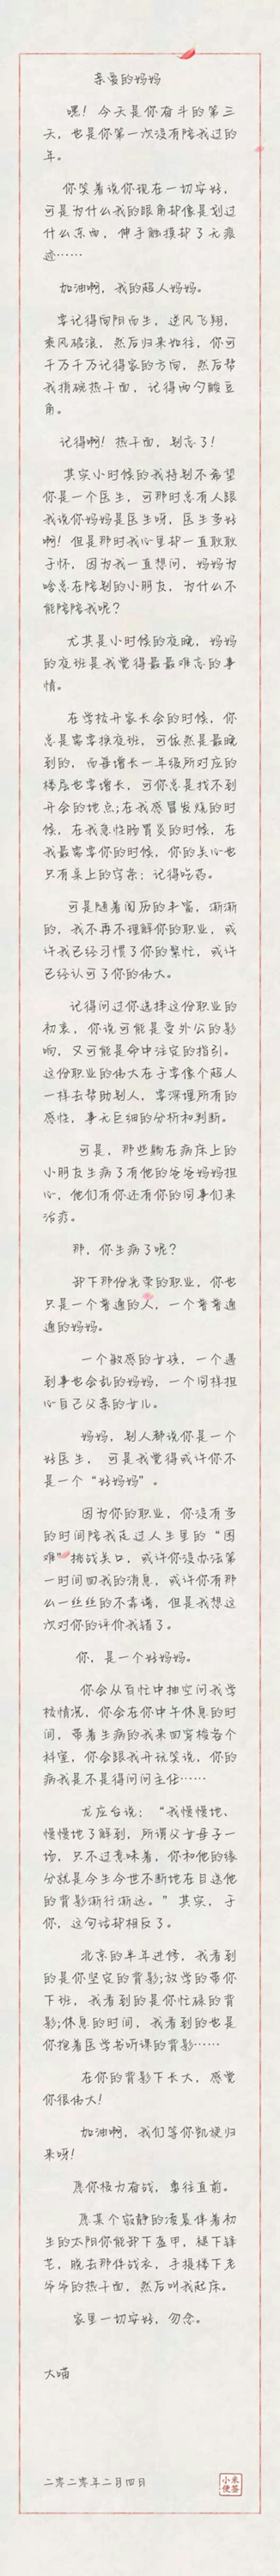 亲爱的妈妈
嘿！今天是你奋斗的第三
天，也是你第一次没有陪我过的
年。
你笑着说你现在一切安好，
可是为什么我的眼角却像是划过
什么东西，伸手触摸却了无痕
迹……
加油啊，我的超人妈妈。
要记得向阳而生，逆风飞翔，
乘风破浪，然后归来如往，你可
千万千万记得家的方向，然后帮
我捎碗热干面，记得两勺酸豆
角。
记得啊！热干面，别忘了！
其实小时候的我特别不希望
你是一个医生，可那时总有人跟
我说你妈妈是医生呀，医生多好
啊！但是那时我心里却一直耿耿
于怀，因为我一直想问，妈妈为
啥总在陪别的小朋友，为什么不
能陪陪我呢？
尤其是小时候的夜晚，妈妈
的夜班是我觉得最最难忘的事
情。
在学校开家长会的时候，你
总是需要换夜班，可依然是最晚
到的，而每增长一年级所对应的
楼层也要增长，可你总是找不到
开会的地点；在我感冒发烧的时
候，在我急性肠胃炎的时候，在
我最需要你的时候，你的关心也
只有桌上的字条：记得吃药。
可是随着阅历的丰富，渐渐
的，我不再不理解你的职业，或
许我已经习惯了你的繁忙，或许
已经认可了你的伟大。
记得问过你选择这份职业的
初衷，你说可能是受外公的影
响，又可能是命中注定的指引。
这份职业的伟大在于要像个超人
一样去帮助别人，要深埋所有的
感性，事无巨细的分析和判断。
可是，那些躺在病床上的
小朋友生病了有他的爸爸妈妈担
心，他们有你还有你的同事们来
治疗。
那，你生病了呢？
卸下那份光荣的职业，你也
只是一个普通的人，一个普普通
通的妈妈。
一个敏感的女孩，一个遇
到事也会乱的妈妈，一个同样担
心自己父亲的女儿。
妈妈，别人都说你是一个
好医生，可是我觉得或许你不
是一个“好妈妈”。
因为你的职业，你没有多
的时间陪我走过人生里的“困
难”挑战关口，或许你没办法第
一时间回我的消息，或许你有那
么一丝丝的不靠谱，但是我想这
次对你的评价我错了。
你，是一个好妈妈。
你会从百忙中抽空问我学
校情况，你会在你中午休息的时
间，带着生病的我来回穿梭各个
科室，你会跟我开玩笑说，你的
病我是不是得问问主任……
龙应台说：“我慢慢地、
慢慢地了解到，所谓父女母子一
场，只不过意味着，你和他的缘
分就是今生今世不断地在目送他
的背影渐行渐远。”其实，于
你，这句话却相反了。
北京的半年进修，我看到
的是你坚定的背影；放学的带你
下班，我看到的是你忙碌的背
影；休息的时间，我看到的也是
你抱着医学书听课的背影……
在你的背影下长大，感觉
你很伟大！
加油啊，我们等你凯旋归
来呀！
愿你极力奋战，勇往直前。
愿某个寂静的凌晨伴着初
生的太阳你能卸下盔甲，褪下锋
芒，脱去那件战衣，手提楼下老
爷爷的热干面，然后叫我起床。
家里一切安好，勿念。
大喵
二零二零年二月四日
小米
便签